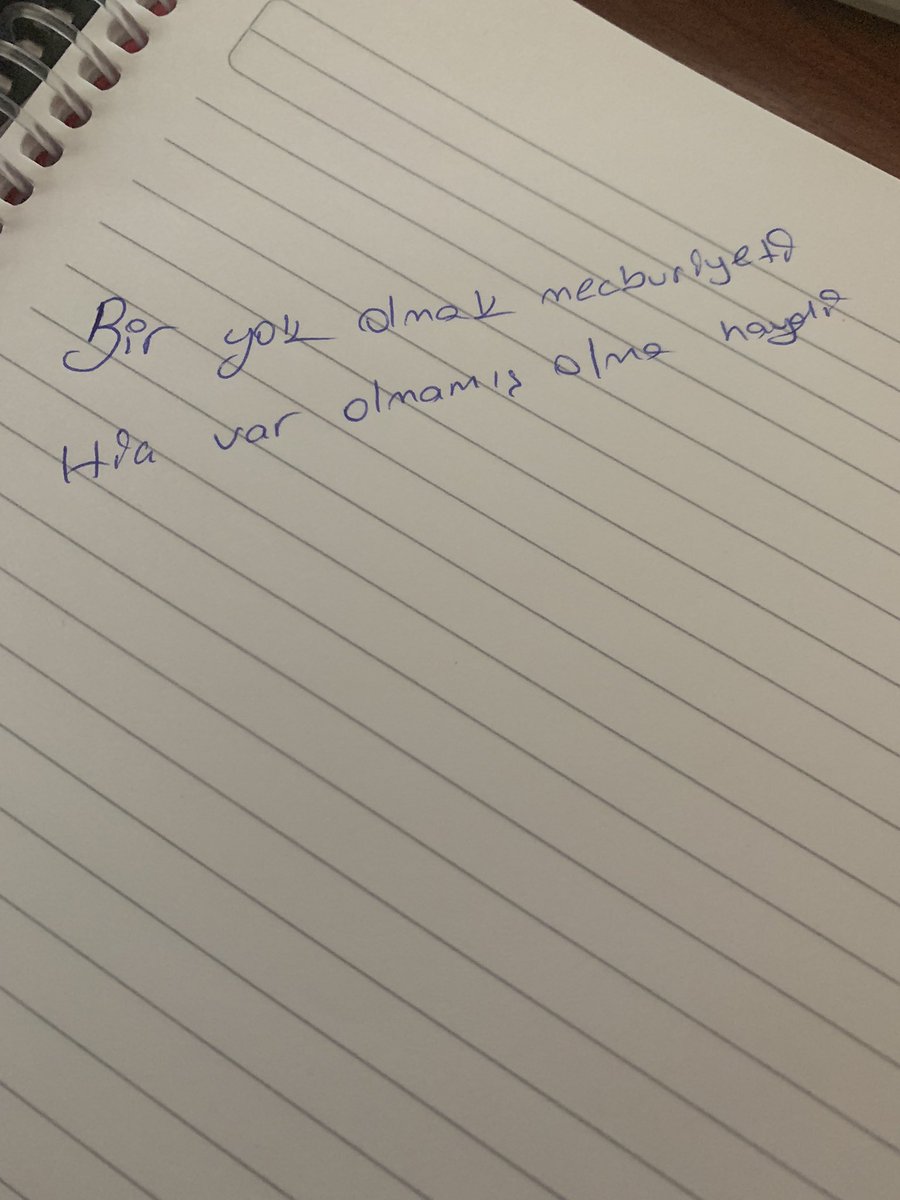 Bir yok olmak mecburiyeti
Hia var olmamış olma